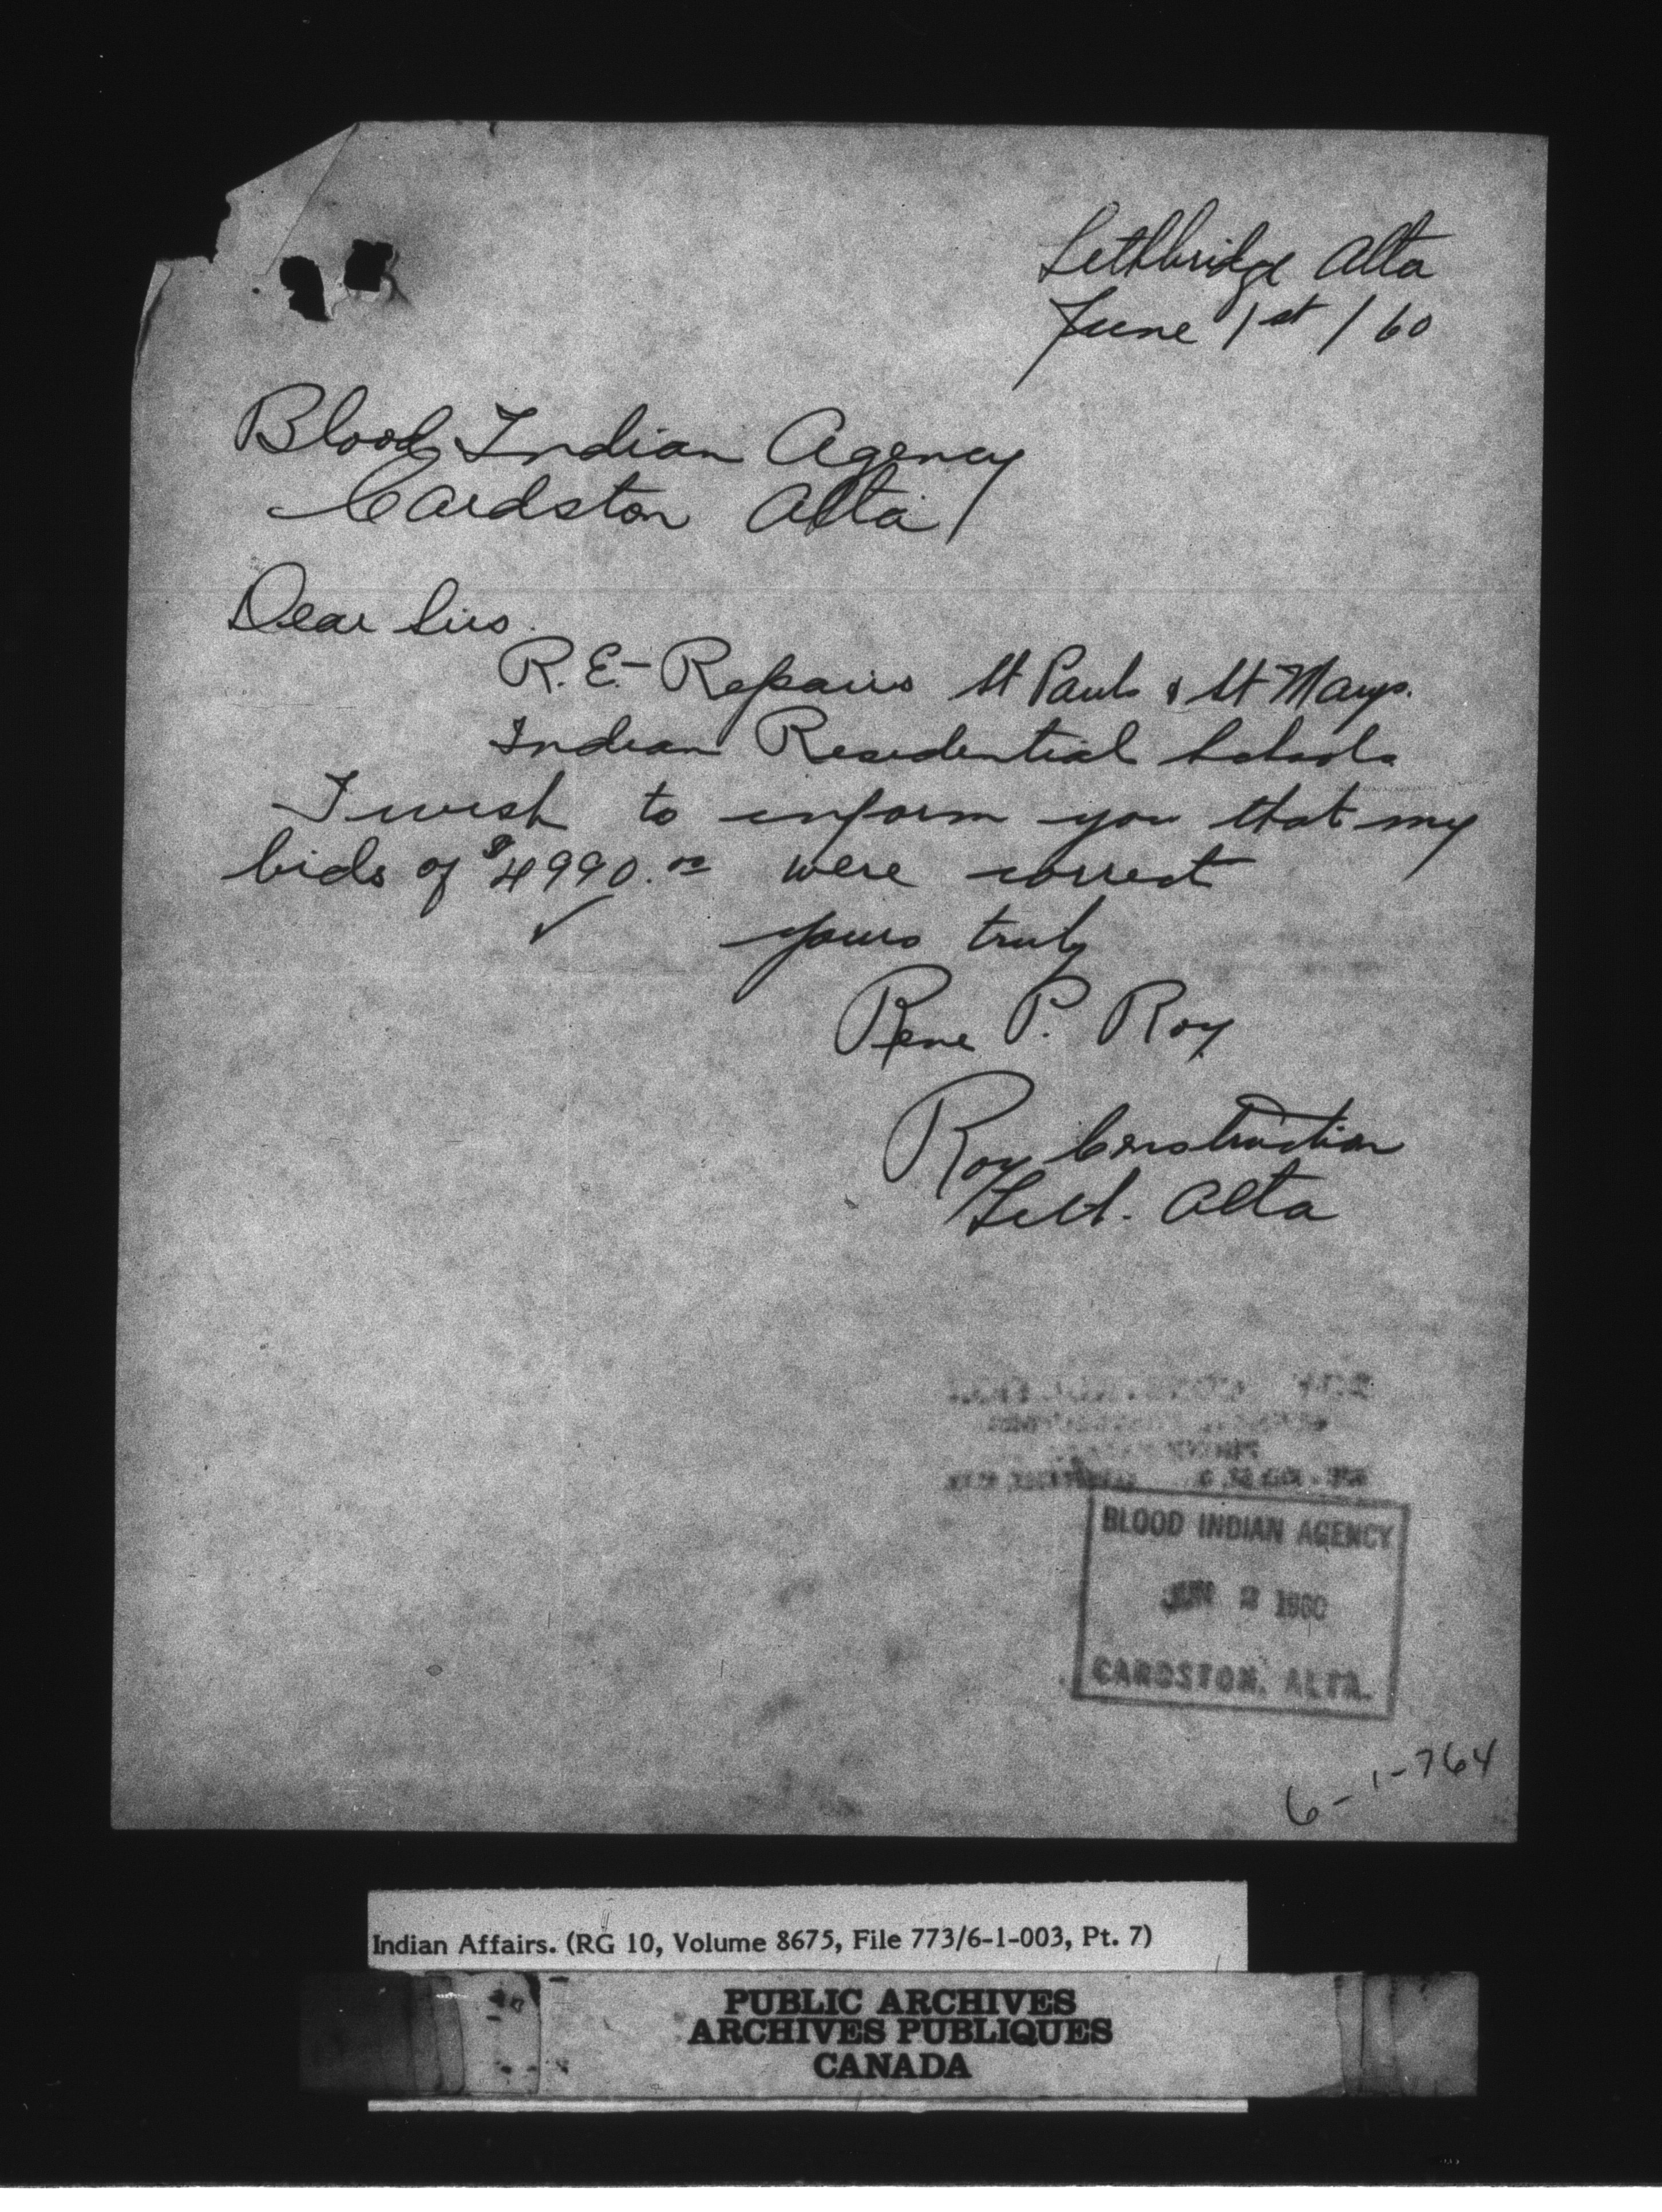 Lethbridge Alta
June 1st / 60
Blood Indian Agency
Cardston Alta
Dear Sirs.
R.E.- Repairs St Pauls & St Marys.
Indian Residential Schools
I wish to inform you that my
bids of $4990.00 were correct
yours truly
Rene P. Roy
Roy Construction
Leth. Alta
BLOOD INDIAN AGENCY
JUN 2 1960
CARDSTON, ALTA.
6-1-764
Indian Affairs. (RG 10, Volume 8675, File 773/6-1-003, Pt. 7)
PUBLIC ARCHIVES
ARCHIVES PUBLIQUES
CANADA